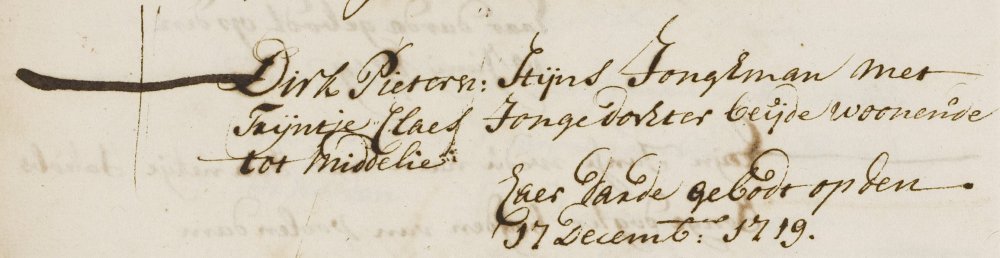 Dirk Pietersz: Stijns Jongkman met
Trijntje Claes Jongedochter beijde woonende
tot Middelie
haer darde gebodt op den
17 Decemb: 1719.